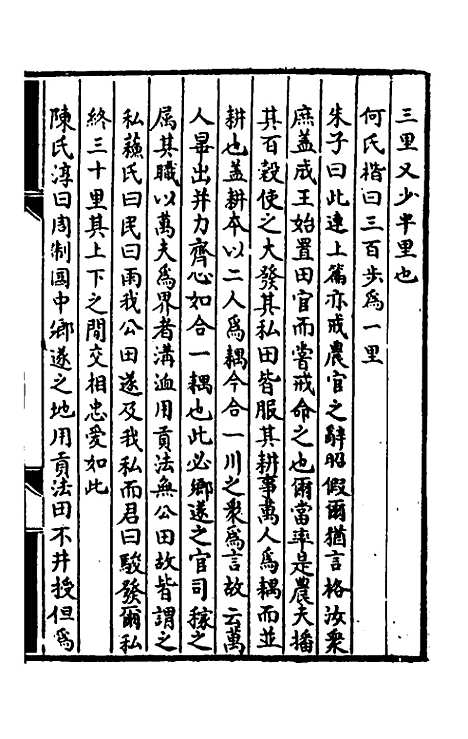 三里又少半里也
何氏楷曰三百步爲一里
朱子曰此連上篇亦戒農官之辭昭假爾猶言格汝衆
庶盖成王始置田官而嘗戒命之也爾當率是農夫播
其百穀使之大發其私田皆服其耕事萬人爲耦而並
耕也盖耕本以二人爲耦今合一川之衆爲言故云萬
人畢出并力齊心如合一耦也此必鄉遂之官司稼之
属其職以萬夫爲界者溝洫用貢法無公田故皆謂之
私蘇氏曰民曰雨我公田遂及我私而君曰駿發爾私
終三十里其上下之間交相忠愛如此
陳氏淳曰周制國中鄉遂之地用貢法田不井授但爲